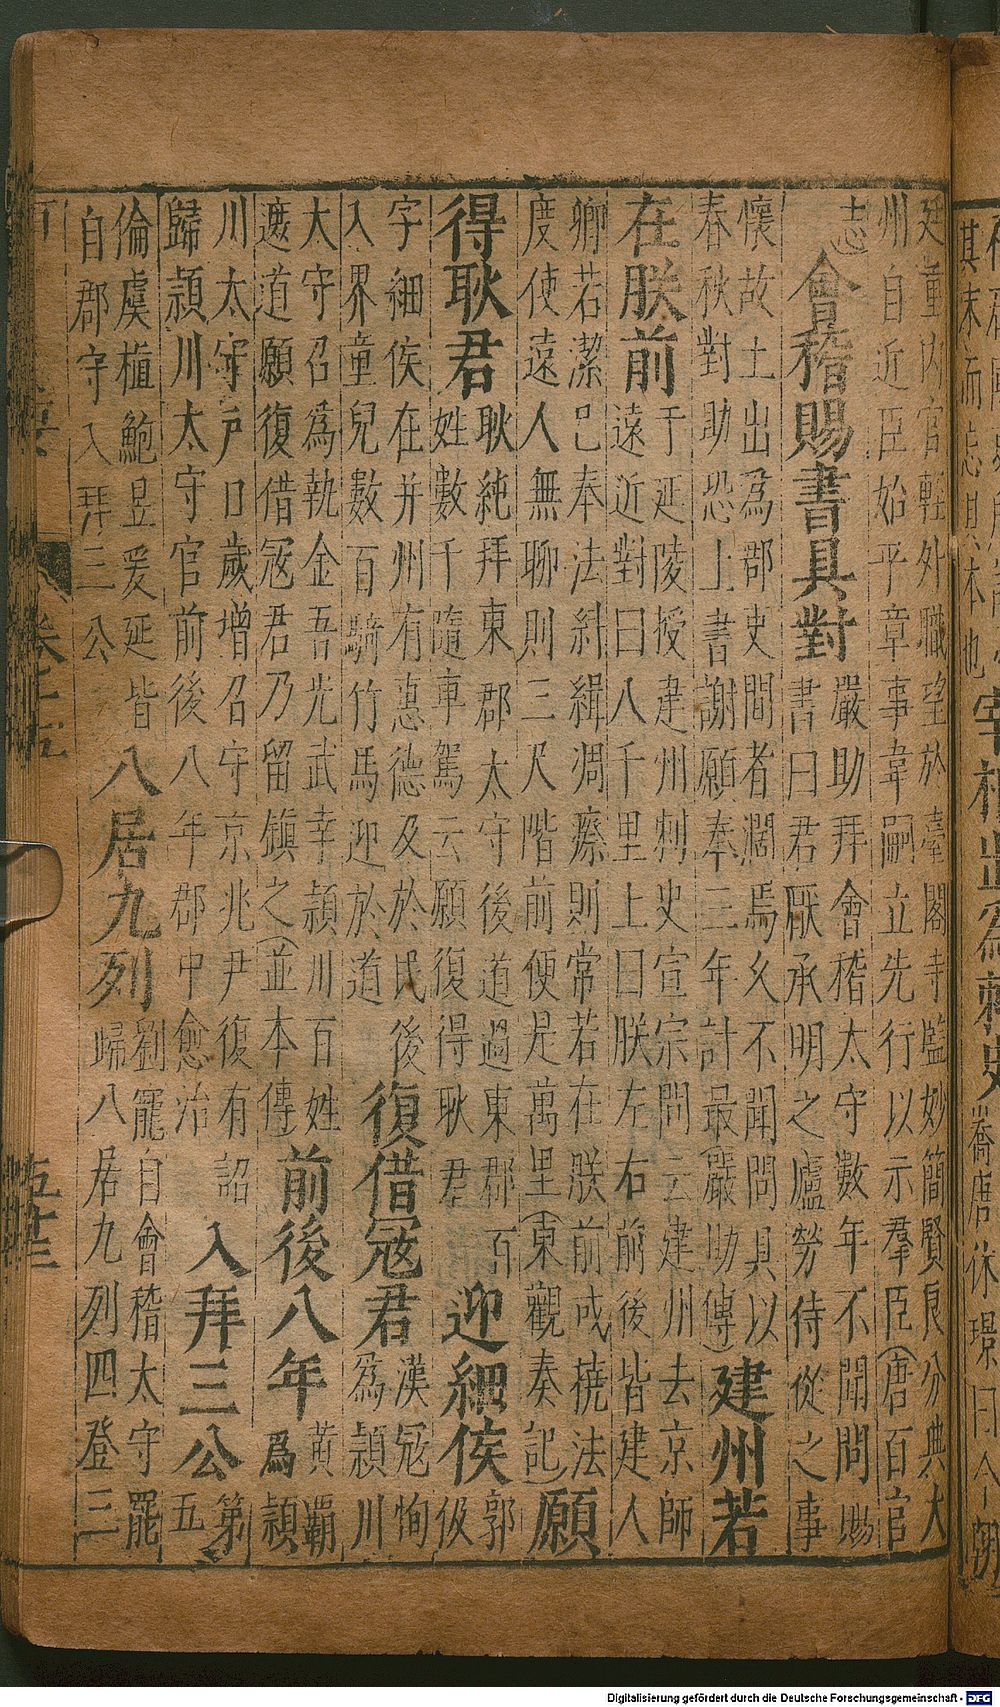 其末而忘其本也
宰相出爲刺史
廷重内官輕外職望於臺閣寺監妙簡賢良分典大
州自近臣始平章事韋嗣立先行以示羣臣(唐百官
志
會稽賜書具對
嚴助拜會稽太守數年不聞問賜
書曰君厭承明之廬勞侍從之事
懷故土出爲郡吏間者濶焉久不聞問具以
春秋對助恐上書謝願奉三年計最(嚴助傳)
建州若
在朕前
于延陵授建州刺史宣宗問云建州去京師
遠近對曰八千里上曰朕左右前後皆建人
卿若潔已奉法糾緝凋瘵則常若在朕前或撓法
度使遠人無聊則三尺階前便是萬里(東觀奏記)
願
得耿君
耿純拜東郡太守後道過東郡百
姓數千隨車駕云願復得耿君
迎細侯
郭
伋
字細侯在并州有惠德及於民後
入界童兒數百騎竹馬迎於道
復借冦君
漢冦恂
爲潁川
太守召爲執金吾光武幸潁川百姓
遮道願復借冦君乃留鎮之(並本傳)
前後八年
黄覇
爲潁
川太守戸口歲增召守京兆尹復有詔
歸潁川太守官前後八年郡中愈治
入拜三公
第
五
倫虞植鮑昱爰延皆
自郡守入拜三公
八居九列
劉寵自會稽太守罷
歸八居九列四登三
Digitalisierung gefördert durch die Deutsche Forschungsgemeinschaft - DFG